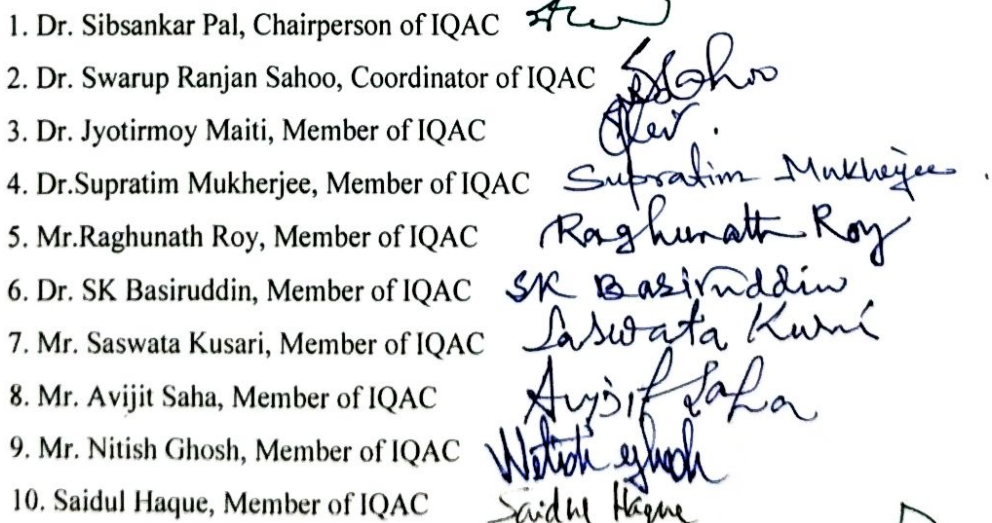 1. Dr. Sibsankar Pal, Chairperson of IQAC
2. Dr. Swarup Ranjan Sahoo, Coordinator of IQAC Sahoo
3. Dr. Jyotirmoy Maiti, Member of IQAC
4. Dr.Supratim Mukherjee, Member of IQAC Supratim Mukherjee.
5. Mr.Raghunath Roy, Member of IQAC Raghunath Roy
6. Dr. SK Basiruddin, Member of IQAC SK Basiruddin
7. Mr. Saswata Kusari, Member of IQAC Saswata Kusari
8. Mr. Avijit Saha, Member of IQAC Avijit Saha
9. Mr. Nitish Ghosh, Member of IQAC Nitish Ghosh
10. Saidul Haque, Member of IQAC Saidul Haque